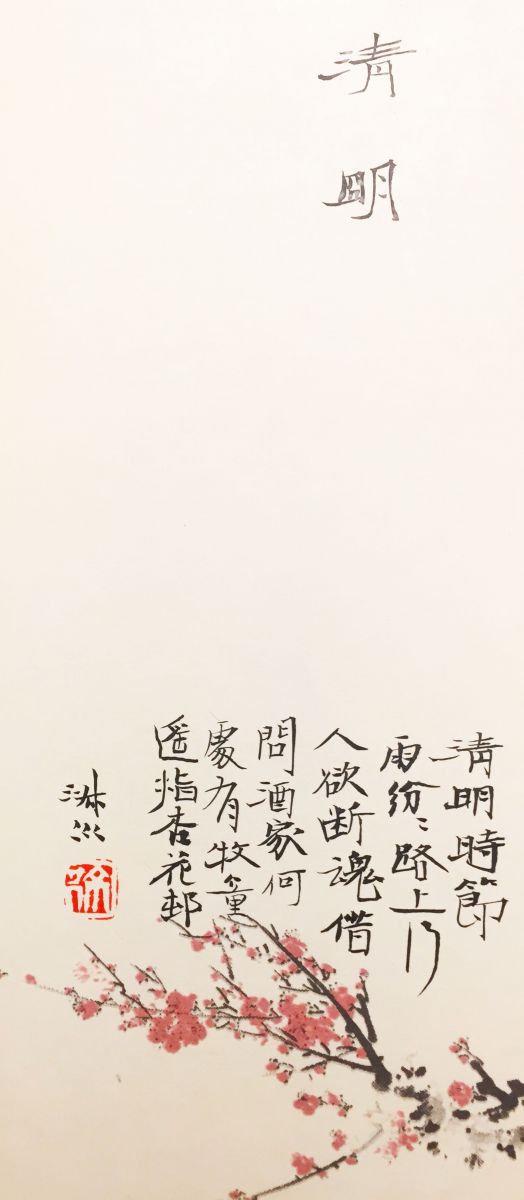 清明
清明時節
雨紛〻路上行
人欲断魂借
問酒家何
處有牧童
遥指杏花邨
淋